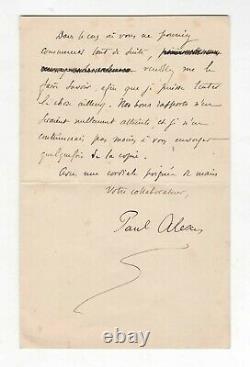 Dans le cas où vous ne pourriez
commencer tout de suite,
veuillez me le
faire savoir, afin que je puisse tenter
la chose ailleurs. Nos bons rapports n'en
seraient nullement atteints, et je n'en
continuerai pas moins à vous envoyer
quelquefois de la copie.
Avec une cordiale poignée de mains
Votre collaborateur,
Paul Alexis